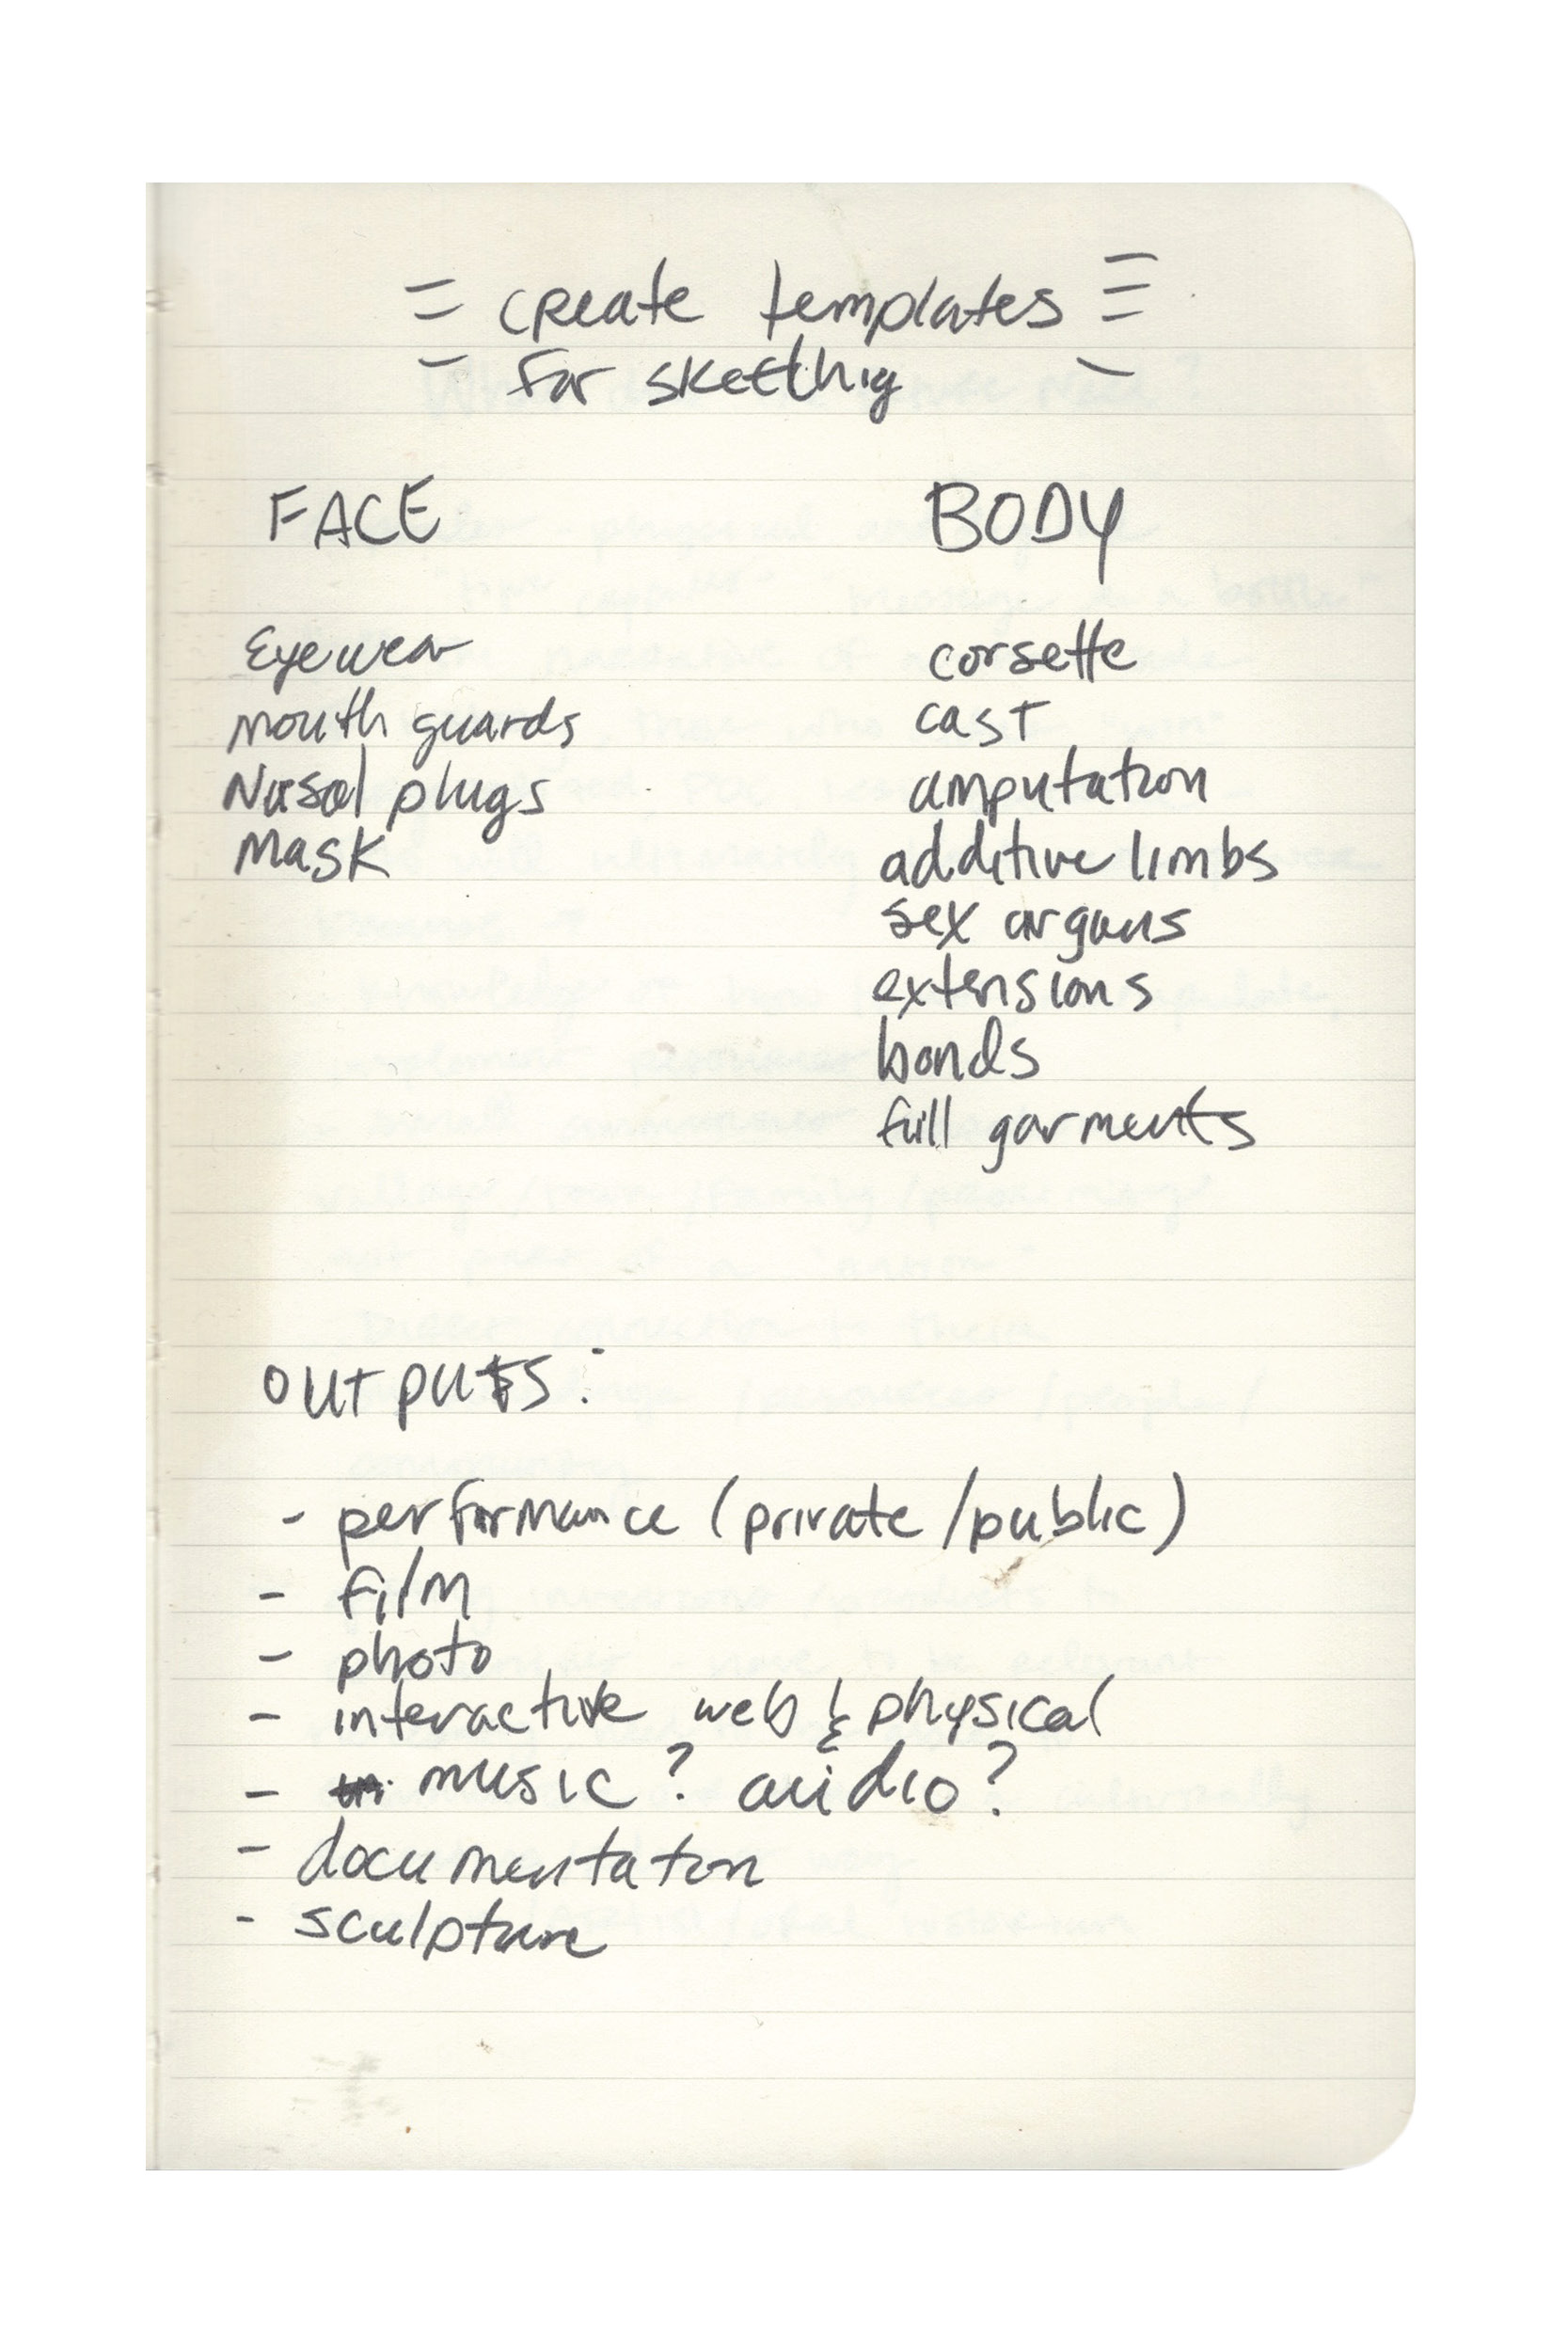 create templates
for sketching
FACE
BODY
Eyewear
mouth guards
Nasal plugs
Mask
corsette
cast
amputation
additive limbs
sex organs
extensions
bonds
full garments
OUTPUTS:
- performance (private/public)
- film
- photo
- interactive web & physical
- music? audio?
- documentation
- sculpture